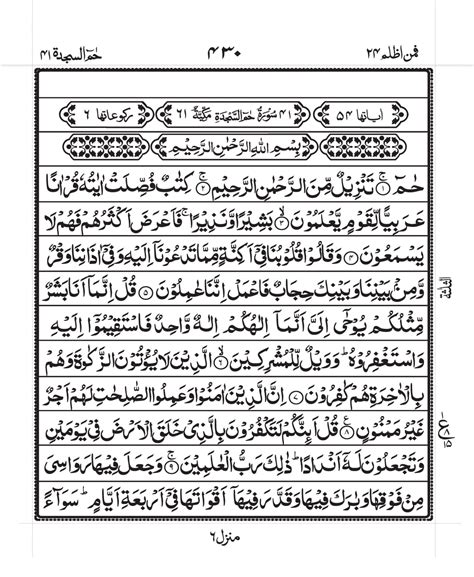 فمن اظلم ۲۴ ۴۳۰ حٰمٓ السجدة ۴۱
اٰیاتها ۵۴ ۴۱ سُوْرَةُ حٰمٓ السَّجْدَةِ مَكِّیَّةٌ ۶۱ ركوعاتها ۶
بِسْمِ اللّٰهِ الرَّحْمٰنِ الرَّحِیْمِ
حٰمٓ ۱ تَنْزِیْلٌ مِّنَ الرَّحْمٰنِ الرَّحِیْمِ ۲ كِتٰبٌ فُصِّلَتْ اٰیٰتُهٗ قُرْاٰنًا
عَرَبِیًّا لِّقَوْمٍ یَّعْلَمُوْنَ ۳ بَشِیْرًا وَّنَذِیْرًا ۚ فَاَعْرَضَ اَكْثَرُهُمْ فَهُمْ لَا
یَسْمَعُوْنَ ۴ وَقَالُوْا قُلُوْبُنَا فِیْۤ اَكِنَّةٍ مِّمَّا تَدْعُوْنَاۤ اِلَیْهِ وَفِیْۤ اٰذَانِنَا وَقْرٌ
وَّمِنْۢ بَیْنِنَا وَبَیْنِكَ حِجَابٌ فَاعْمَلْ اِنَّنَا عٰمِلُوْنَ ۵ قُلْ اِنَّمَاۤ اَنَا بَشَرٌ
مِّثْلُكُمْ یُوْحٰۤی اِلَیَّ اَنَّمَاۤ اِلٰهُكُمْ اِلٰهٌ وَّاحِدٌ فَاسْتَقِیْمُوْۤا اِلَیْهِ
وَاسْتَغْفِرُوْهُ ؕ وَوَیْلٌ لِّلْمُشْرِكِیْنَ ۶ الَّذِیْنَ لَا یُؤْتُوْنَ الزَّكٰوةَ وَهُمْ
بِالْاٰخِرَةِ هُمْ كٰفِرُوْنَ ۷ اِنَّ الَّذِیْنَ اٰمَنُوْا وَعَمِلُوا الصّٰلِحٰتِ لَهُمْ اَجْرٌ
غَیْرُ مَمْنُوْنٍ ۸ قُلْ اَىِٕنَّكُمْ لَتَكْفُرُوْنَ بِالَّذِیْ خَلَقَ الْاَرْضَ فِیْ یَوْمَیْنِ
وَتَجْعَلُوْنَ لَهٗۤ اَنْدَادًا ؕ ذٰلِكَ رَبُّ الْعٰلَمِیْنَ ۹ وَجَعَلَ فِیْهَا رَوَاسِیَ
مِنْ فَوْقِهَا وَبٰرَكَ فِیْهَا وَقَدَّرَ فِیْهَاۤ اَقْوَاتَهَا فِیْۤ اَرْبَعَةِ اَیَّامٍ ؕ سَوَآءً
الثلثة
ع
۱۵
منزل ۶